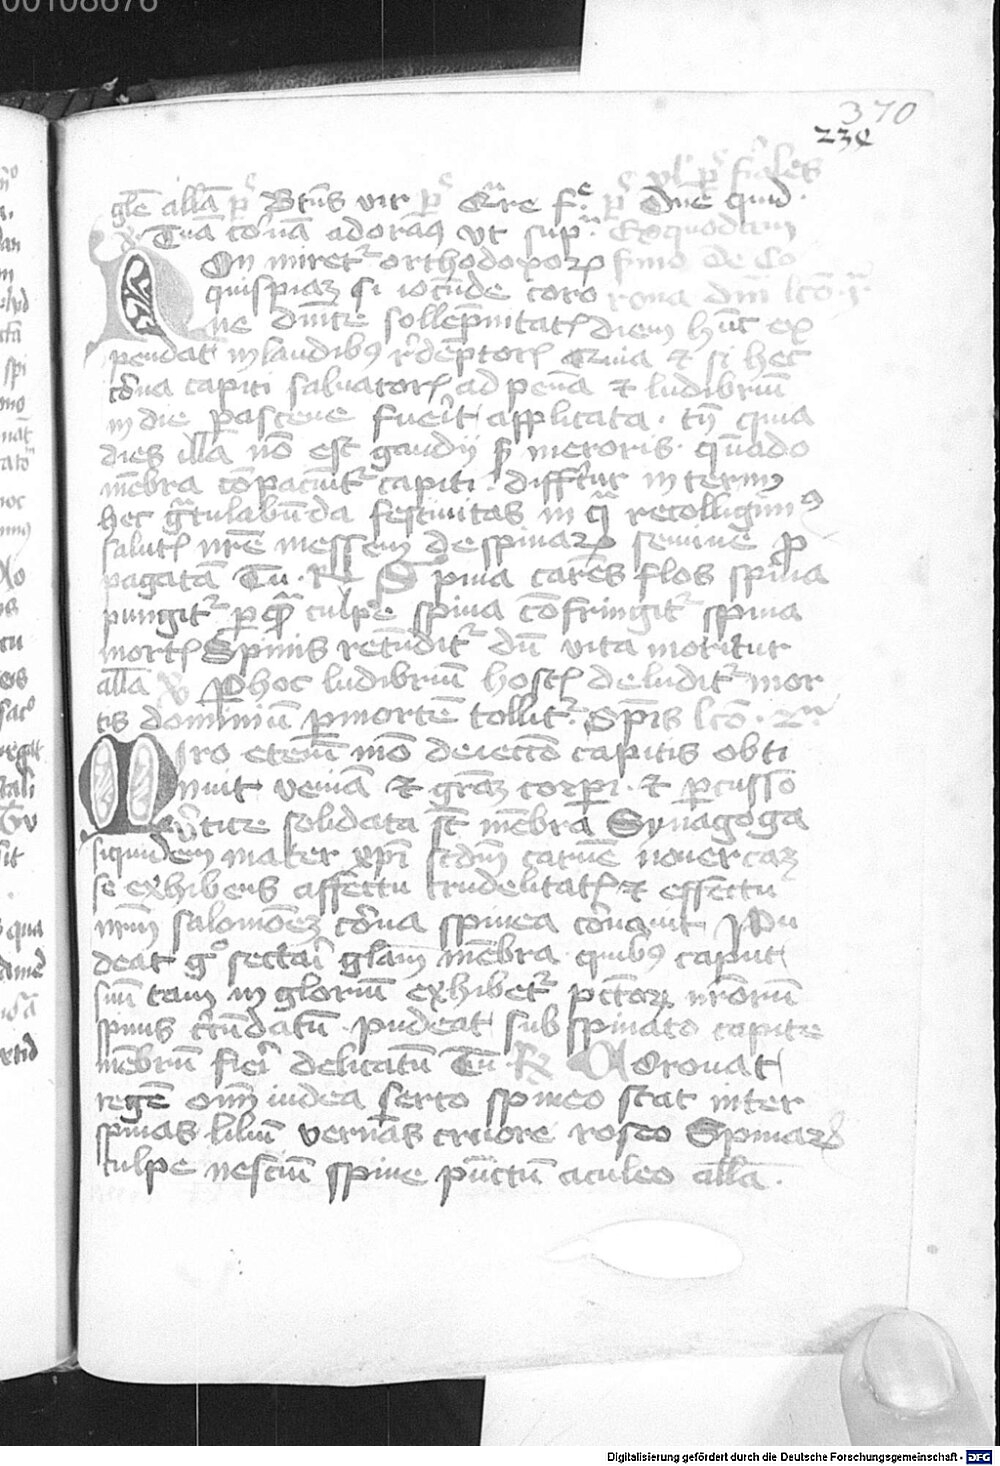 00108676
370
234
glē allā p̄s Btūs vir p̄s Qr̄re f.e p̄s Dnē quid
Tuā corōnā adoram9 vt sup̄ Ex quodam
On miret᷑ orthodoxorꝝ s̄mo de co
quispiaꝫ si iocūde coro rona dn̄i lcō .i.
ne dn̄ice sollēpnitatꝭ diem hūc ex
pendat in laudibꝰ rēdēptorꝭ Quia et si hec
corōna capiti saluatorꝭ ad penā et ludibriū
in die pasceue fuerit applicata . tn̄ quia
dies illa nō est gaudij sꝫ meroris . quādo
mēbra cōpaciūt᷑ capiti . differtur interim
hec gͣtulabūda festiuitas in qͣ recolligimꝰ
salutꝭ nr̄e messem de spinarꝝ semine ꝓ
pagatā Tu . R̄ Spina carēs flos spina
pungit᷑ per quā culpe spina cōfringit᷑ spina
mortꝭ Spinis retūdit᷑ dū vita moritur
allā V̄ Per hoc ludibriū hostꝭ deludit᷑ mor
tis dominiū per mortē tollit᷑ Spīs lcō . 2a
Miro eteni mō deiecto capitis obti
nuit veniā et grāꝫ corpꝑi . et percusso
v̄tice solidata st̄ mēbra Synagoga
siquidem mater xpī scdm̄ carnē nouercaꝫ
se exhibens affectu crudelitatꝭ et effectu
nrm̄ salomonēꝫ corōna spinea coronauit Pu
deat gͦ sectari glam̄ mēbra quibꝰ caput
suū tam inglorium exhibet᷑ pctōꝝ nr̄orum
spinis c̄cūdatū . pudeat sub spinato capite
mēbrū fieri delicatū Tu . R̄ Coronat
regē om̄ iudea serto spineo stat inter
spinas liliū vernās cruore roseo Spinarꝝ
culpe nesciū spine pūctū aculeo allā .
Digitalisierung gefördert durch die Deutsche Forschungsgemeinschaft - DFG